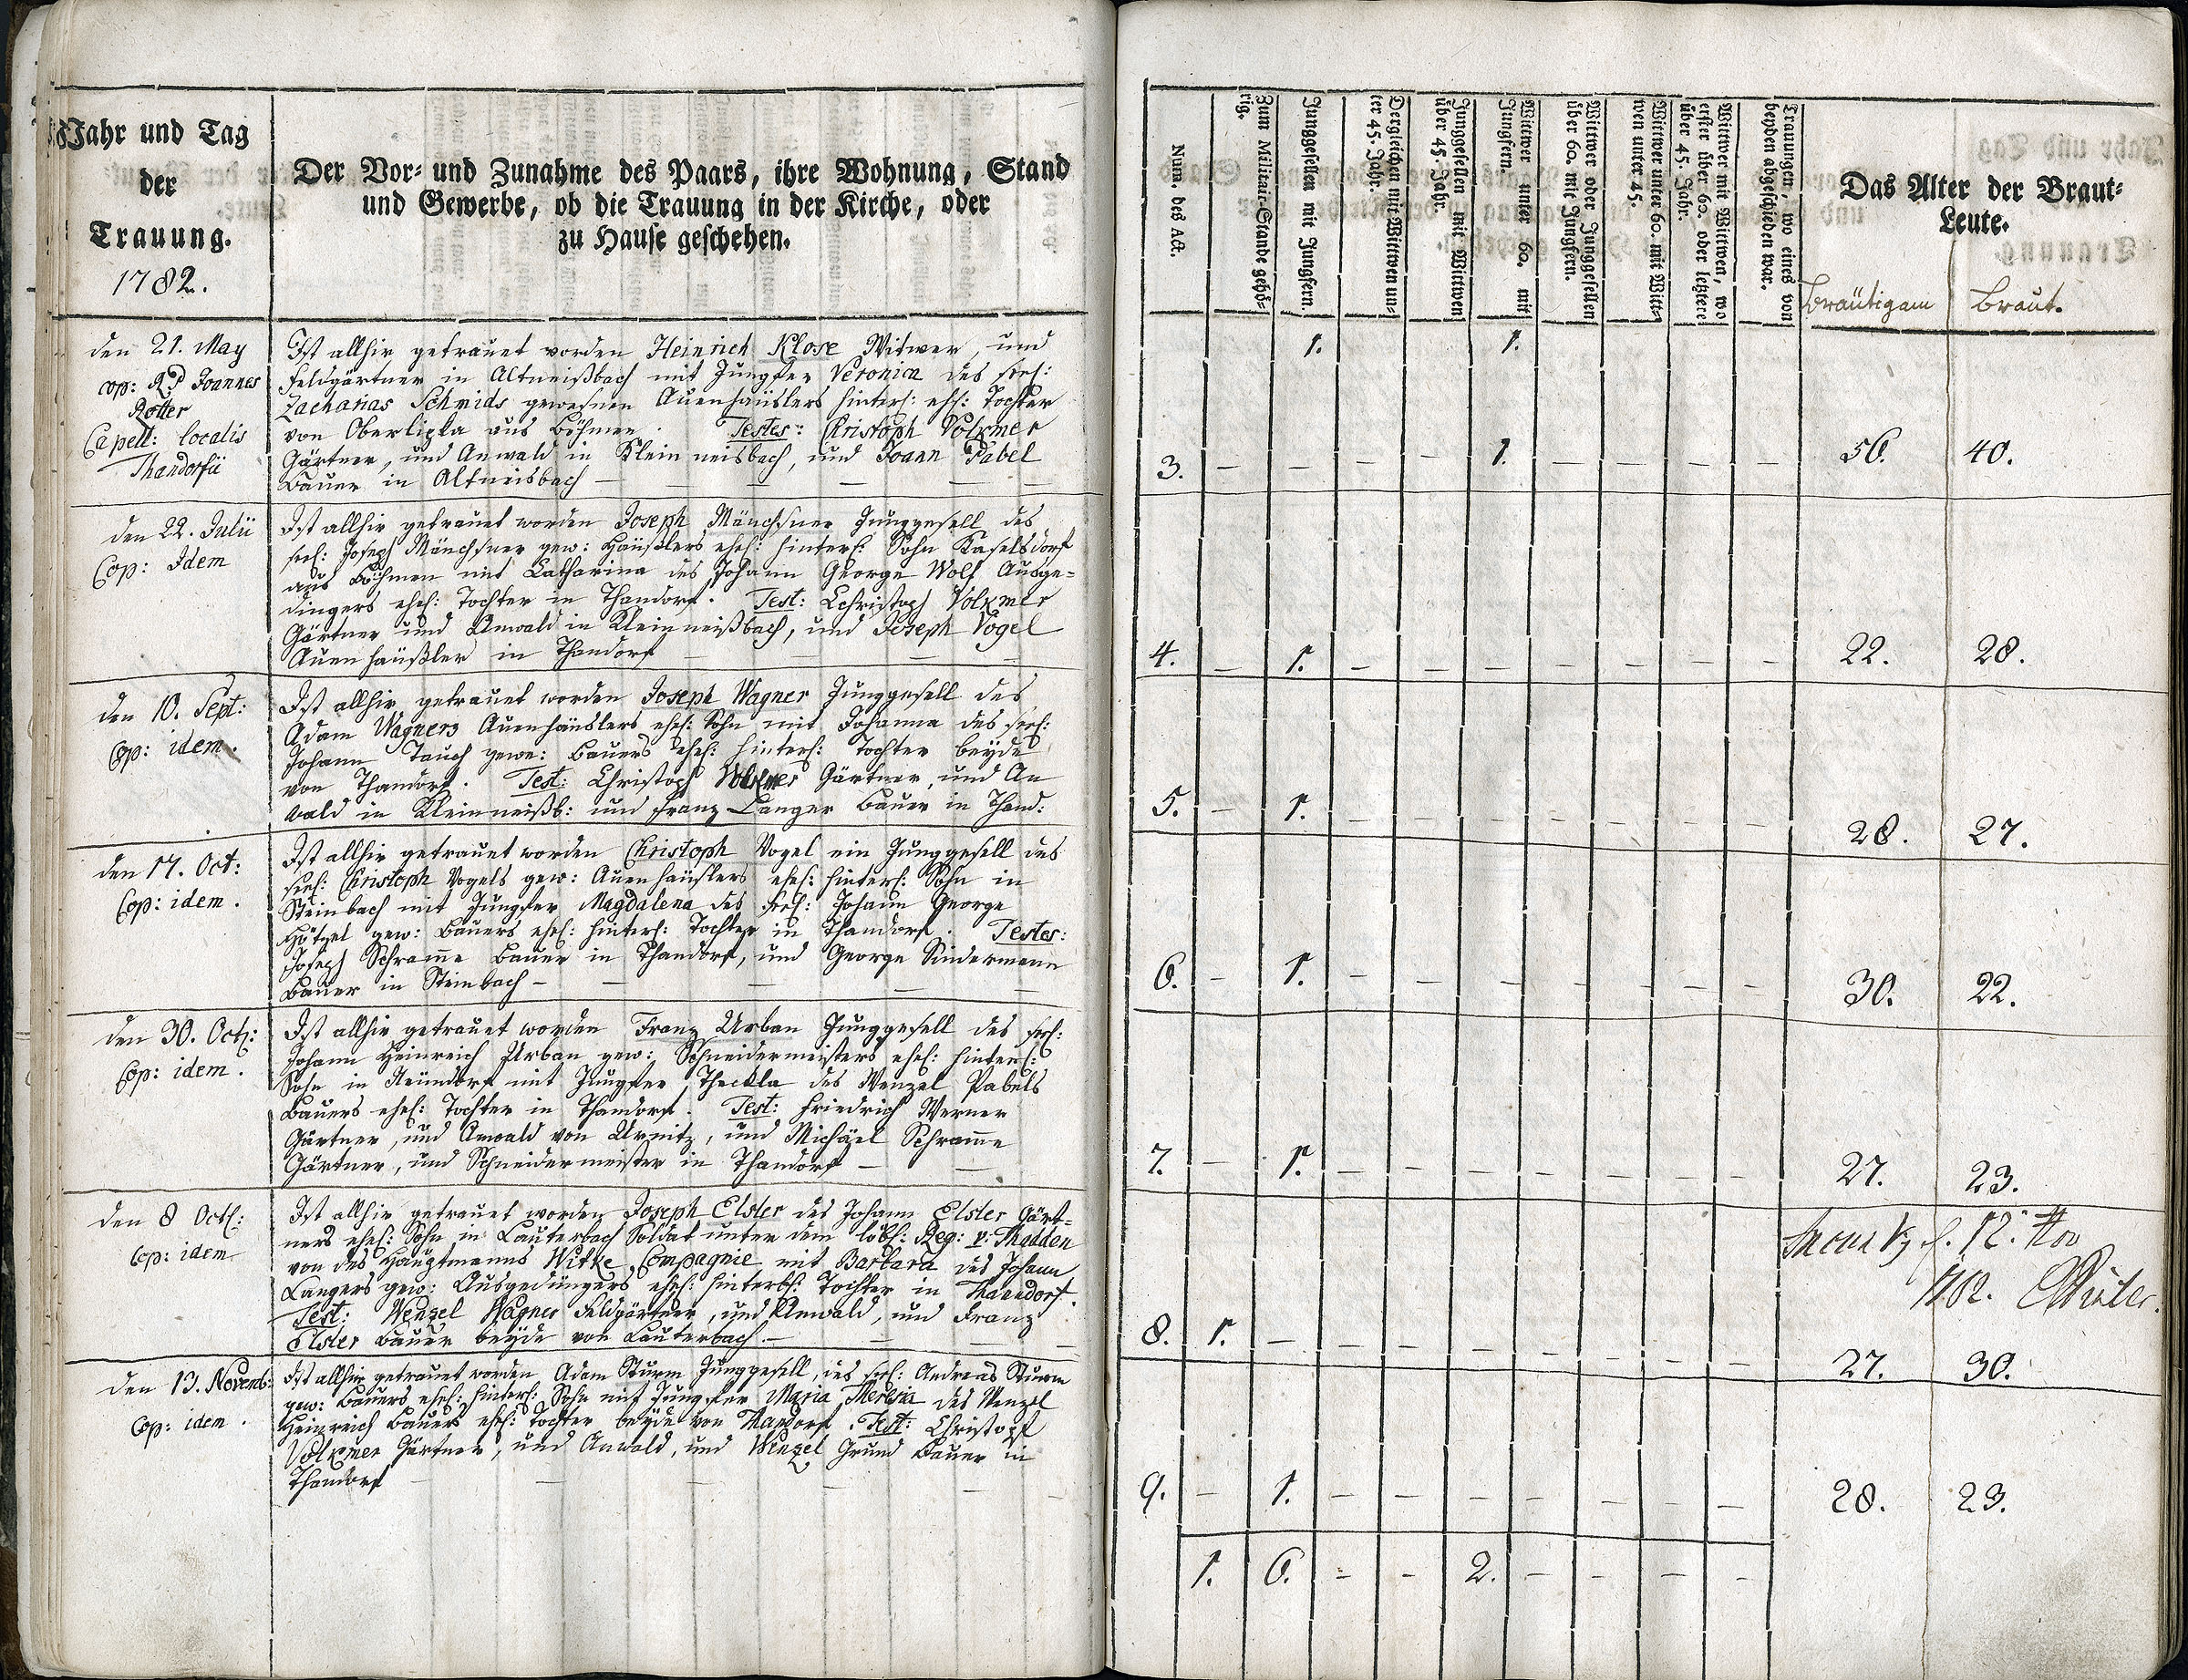 Jahr und Tag
der
Trauung.
1782.
Der Vor- und Zunahme des Paars, ihre Wohnung, Stand
und Gewerbe, ob die Trauung in der Kirche, oder
zu Hause geschehen.
den 21. May
cop: R.P Joannes
Rotter
Capell: localis
Thandorfii
Ist allhir getrauet worden Heinrich Klose Witwer, und
Feldgärtner in Altneißbach mit Jungfer Veronica des seel:
Zacharias Schmids gewesnen Auenhäuslers hinterl: ehel: Tochter
von Oberlipka aus Böhmen. Testes: Christoph Volkmer
Gärtner, und Anwald in Klein neisbach, und Joann Pabel
Bauer in Altneisbach —
den 22. Julii
Cop: Idem
Ist allhir getrauet worden Joseph Mänchsner Junggesell des
seel: Joseph Mänchsner gew: Häußlers ehel: hinterl: Sohn
aus Böhmen mit Catharina des Johann George Wolf Ausge-
dingers ehel: Tochter in Thandorf. Test: Christoph Volkmer
Gärtner und Anwald in Kleinneißbach, und Joseph Vogel
Auenhäußler in Thandorf —
den 10. Sept:
Cop: idem.
Ist allhir getrauet worden Joseph Wagner Junggesell des
Adam Wagners Auenhäuslers ehel: Sohn mit Johanna des seel:
Johann Tauch gewe: Bauers ehel: hinterl: Tochter beyde
von Thandorf. Test: Christoph Volkmer Gärtner, und An
wald in Kleinneißb: und Franz Langer Bauer in Thand:
den 17. Oct:
Cop: idem.
Ist allhir getrauet worden Christoph Vogel ein Junggesell des
seel: Christoph Vogels gew: Auenhäuslers ehel: hinterl: Sohn in
Steinbach mit Jungfer Magdalena des seel: Johann George
Hötzel gew: Bauers ehel: hinterl: Tochter in Thandorf. Testes:
Joseph Schrame Bauer in Thandorf, und George Sindermann
Bauer in Steinbach —
den 30. Oct:
Cop: idem.
Ist allhir getrauet worden Franz Urban Junggesell des seel:
Johann Heinreich Urban gew: Schneidermeisters ehel: hinterl:
Sohn in Neundorf mit Jungfer Theckla des Wenzel Pabels
Bauers ehel: Tochter in Thandorf. Test: Friedrich Werner
Gärtner, und Anwald von Urnitz, und Michael Schrame
Gärtner, und Schneidermeister in Thandorf —
den 8 Oct:
Cop: idem
Ist allhir getrauet worden Joseph Elster des Johann Elster Gärt-
ners ehel: Sohn in Lauterbach Soldat unter dem löbl: Reg: v: Thadden
von des Hauptmanns Witke Compagnie mit Barbara des Johann
Langers gew: Ausgedingers ehel: hinterbl: Tochter in Thanndorf.
Test: Wenzel Wagner Feldgärtner, und Anwald, und Franz
Elster Bauer beyde von Lauterbach. —
den 13. Novemb:
Cop: idem.
Ist allhir getrauet worden Adam Sturm Junggesell, des seel: Andreas Sturm
gew: Bauers ehel: hinterl: Sohn mit Jungfer Maria Theresia des Wenzel
Heinreich Bauers ehel: Tochter beyde von Thandorf. Test: Christoph
Volkmer Gärtner, und Anwald, und Wenzel Grund Bauer in
Thandorf —
Num. des Act.
Zum Militair-Stande gehö-
rig.
Junggesellen mit Jungfern.
Dergleichen mit Wittwen un-
ter 45. Jahr.
Junggesellen mit Wittwen
über 45. Jahr.
Wittwer unter 60. mit
Jungfern.
Wittwer oder Junggesellen
über 60. mit Jungfern.
Wittwer unter 60. mit Witt-
wen unter 45.
Wittwer mit Wittwen, wo
erster über 60. oder letztere
über 45. Jahr.
Trauungen, wo eines von
beyden abgeschieden war.
Das Alter der Braut-
Leute.
Bräutigam Braut.
1. 1.
3. — — — — 1. — — — — 56. 40.
4. — 1. — — — — — — — 22. 28.
5. — 1. — — — — — — — 28. 27.
6. — 1. — — — — — — — 30. 22.
7. — 1. — — — — — — — 27. 23.
12.
1782.
8. 1. — — — — — — — — 27. 30.
9. — 1. — — — — — — — 28. 23.
1. 6. — — 2. — — — —